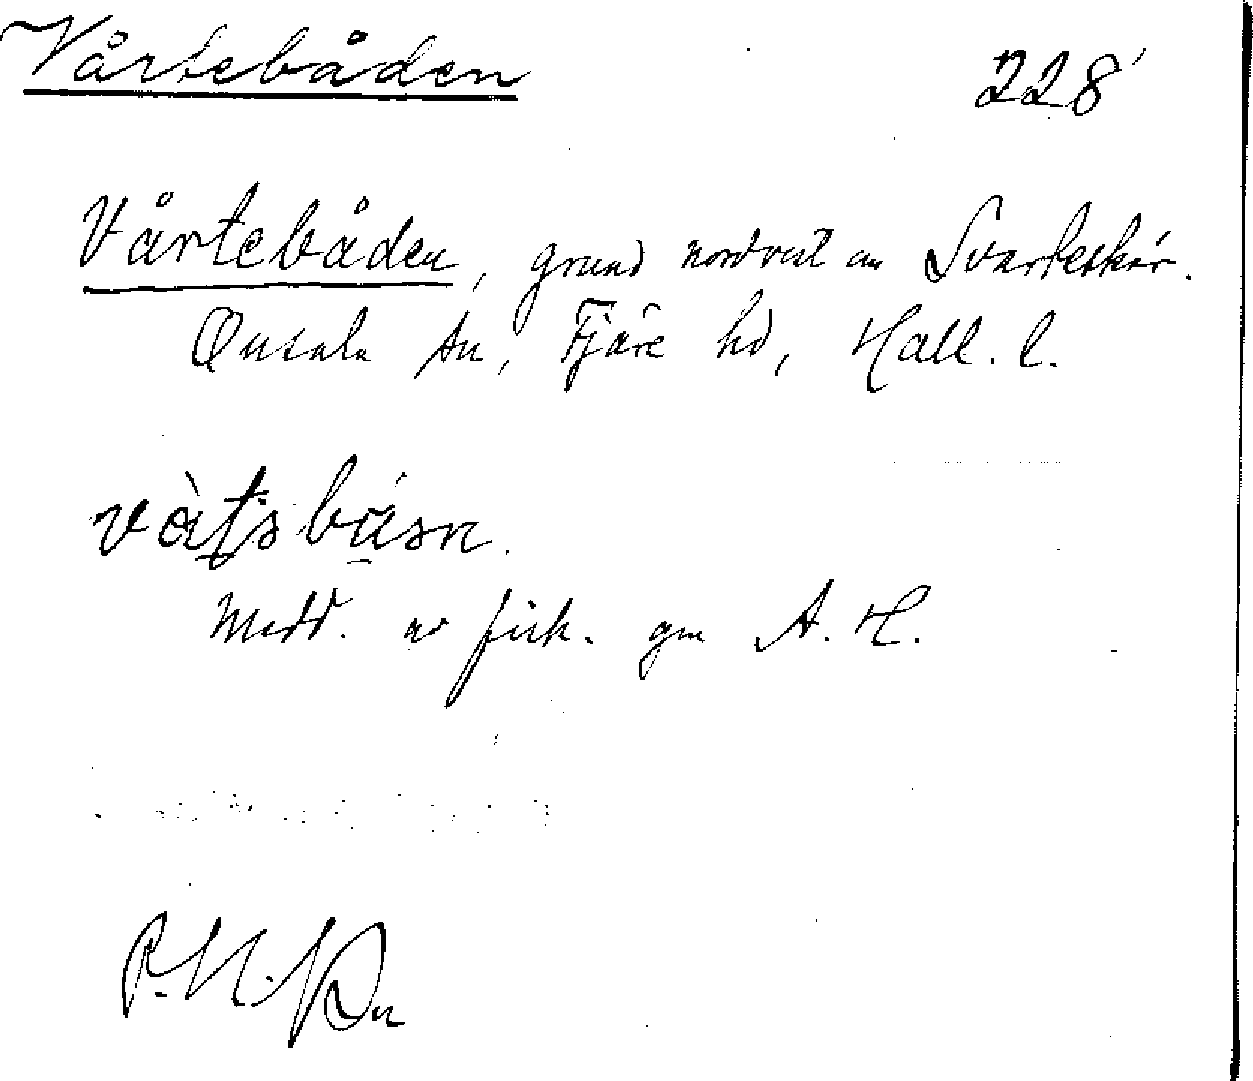 Vårtebåden 228
Vårtebåden, grund nordvest om Svarteskär.
Onsala sn, Fjäre hd, Hall. l.
våtsbåsn.
Medd. av fisk. gm A. H.